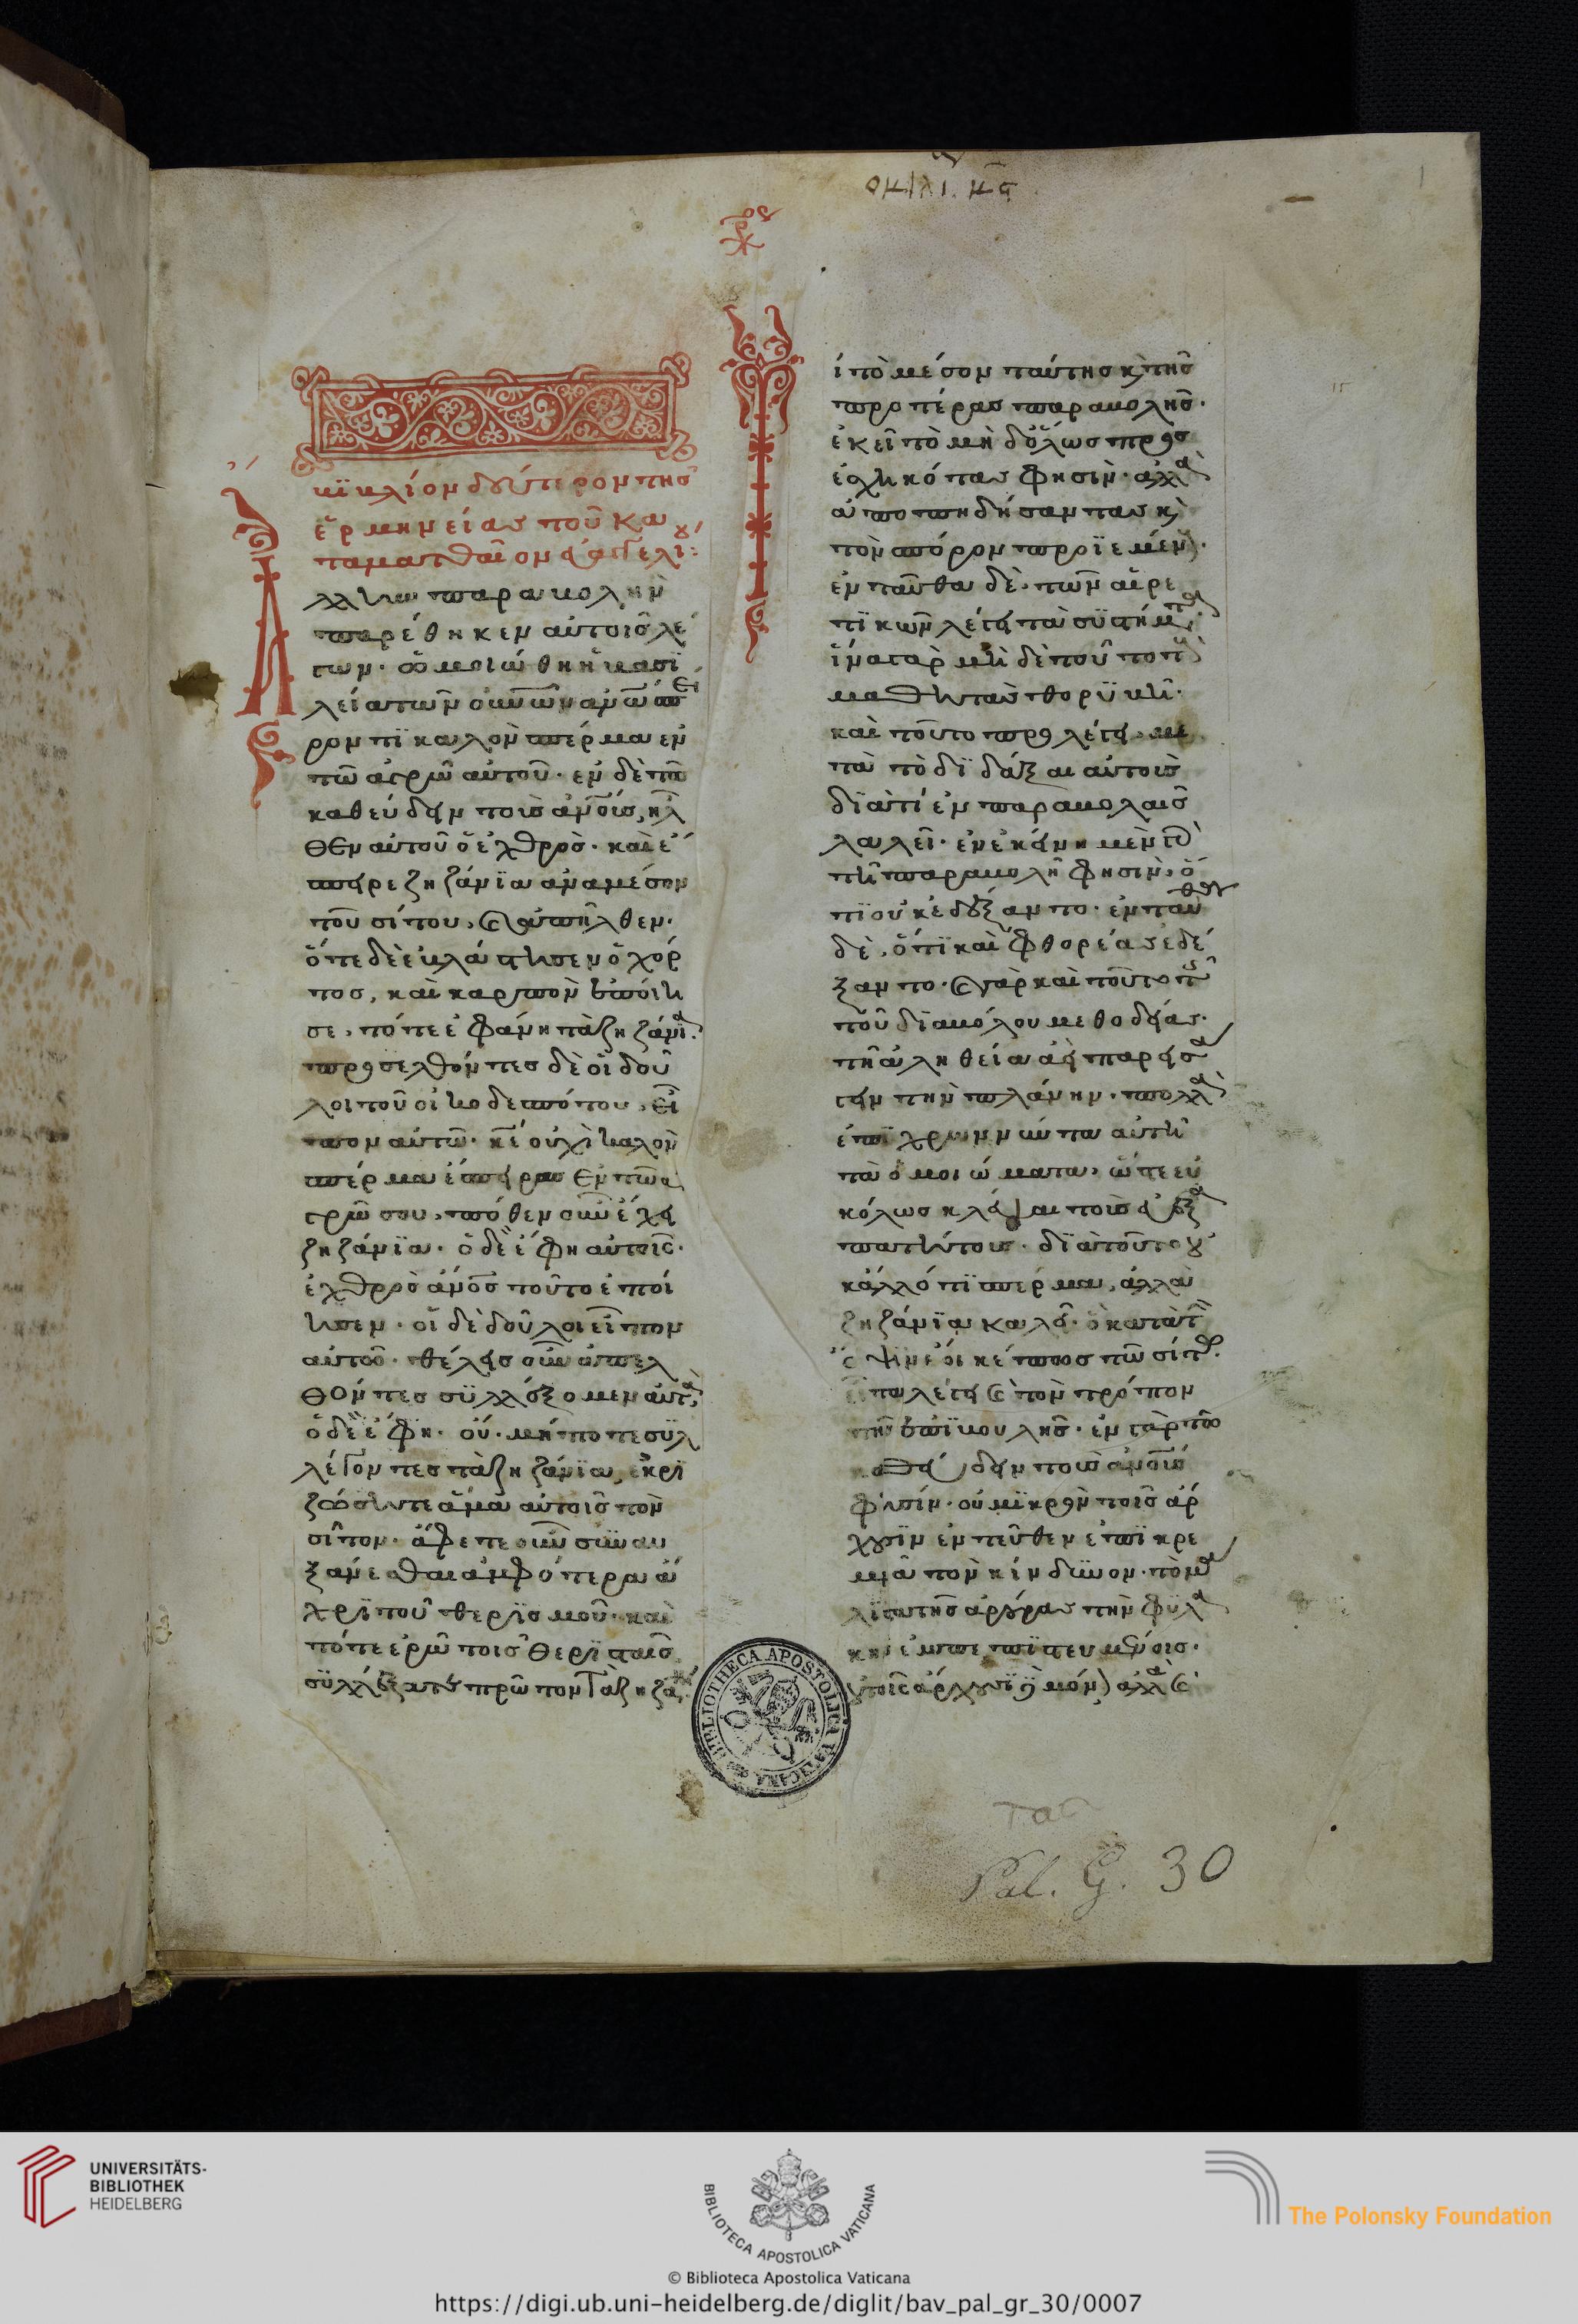 ὁμιλί. μϛ
βιβλίον δεύτερον τῆς
ἑρμηνείας τοῦ κα
τὰ ματθαῖον εὐαγγελίου:
Ἄλλην παραβολὴν
παρέθηκεν αὐτοῖς λέ
γων· ὡμοιώθη ἡ βασι
λεία τῶν οὐνῶν ἀνῶ σπεί
ροντι καλὸν σπέρμα ἐν
τῶ ἀγρῶ αὐτοῦ· ἐν δὲ τῶ
καθεύδειν τοὺς ἀνους, ἦλ
θεν αὐτοῦ ὁ ἐχθρὸς· καὶ ἔ
σπειρε ζηζάνϊα ἀναμέσον
τοῦ σίτου, καὶ ἀπῆλθεν·
ὅτε δὲ ἐβλάστησεν ὁ χόρ
τος, καὶ καρπὸν ἐποίη
σε, τότε ἐφάνη τὰ ζηζάνια.
προσελθόντες δὲ οἱ δοῦ
λοι τοῦ οἰκοδεσπότου, εἶ
πον αὐτῶ· κε οὐχὶ καλὸν
σπέρμα ἔσπειρας ἐν τῶ ἀ
γρῶ σου, πόθεν οὖν ἔχει
ζηζάνϊα· ὁ δὲ ἔφη αὐτοῖς·
ἐχθρὸς ἀνος τοῦτο ἐποί
ησεν· οἱ δὲ δοῦλοι εἶπον
αὐτοῦ· θέλεις οὖν ἀπελ
θόντες συλλέξομεν αὐτά,
ὁ δὲ ἔφη· οὔ· μήποτε συλ
λέγοντες τὰ ζηζάνϊα, ἐκρι
ζώσητε ἅμα αὐτοῖς τὸν
σῖτον· ἄφετε οὖν συναυ
ξάνεσθαι ἀμφότερα ἄ
χρι τοῦ θερισμοῦ· καὶ
τότε ἐρῶ τοῖς θερισταῖς
συλλέξατε πρῶτον τὰ ζηζά
Τί τὸ μέσον ταύτης καὶ τῆς
προτέρας παραβολῆς·
ἐκεῖ τὸ μηδόλως προσ
εσχηκότας φησὶν· ἀλλὰ
ἀποπηδήσαντας καὶ
τὸν σπόρον προϊεμένους·
ἐνταῦθα δὲ, τῶν αἱρε
τικῶν λέγει τὰ συστήματα,
ἵνα γὰρ μὴ δὲ τοῦτο τοὺς
μαθητὰς θορυβῆ·
καὶ τοῦτο προλέγει, με
τὰ τὸ διδάξαι αὐτοὺς
διατί ἐν παραβολαῖς
λαλεῖ· ἐν ἐκείνη μὲν οὖν
τῆ παραβολῆ φησιν, ὅ
τι οὐκ ἐδέξαντο· ἐνταῦθα
δὲ, ὅτι καὶ φθορέας ἐδέ
ξαντο· καὶ γὰρ καὶ τοῦτο τῆς
τοῦ διαβόλου μεθοδείας·
τῆ ἀληθεία ἀεὶ παρεισά
γειν τὴν πλάνην· πολλὰ
ἐπιχρωννύντα αὐτῆ
τὰ ὁμοιώματα, ὥστε εὐ
κόλως κλέψαι τοὺς εὐεξα
πατήτους· διατοῦτο οὐ
κ ἄλλό τι σπέρμα, ἀλλὰ
ζηζάνϊα καλεῖ· ὃ κατὰ τὴν
ὄψιν ἔοικέ πως τῶ σίτω.
εἶτα λέγει καὶ τὸν τρόπον
τῆς ἐπιβουλῆς· ἐν γὰρ τῶ
καθεύδειν τοὺς ἀνους
φησίν· οὐ μικρὸν τοῖς ἄρ
χουσιν ἐντεῦθεν ἐπικρε
μᾶ τὸν κίνδυνον· τοῖς μά
λιστα τῆς ἀρούρας τὴν φυλα
κὴν ἐμπεπιστευμένοις·
οὐ τοῖς ἄρχουσι δὲ μόνον, ἀλλὰ καὶ
Pal. G. 30
BIBLIOTHECA APOSTOLICA VATICANA
UNIVERSITÄTS-
BIBLIOTHEK
HEIDELBERG
BIBLIOTECA APOSTOLICA VATICANA
The Polonsky Foundation
© Biblioteca Apostolica Vaticana
https://digi.ub.uni-heidelberg.de/diglit/bav_pal_gr_30/0007